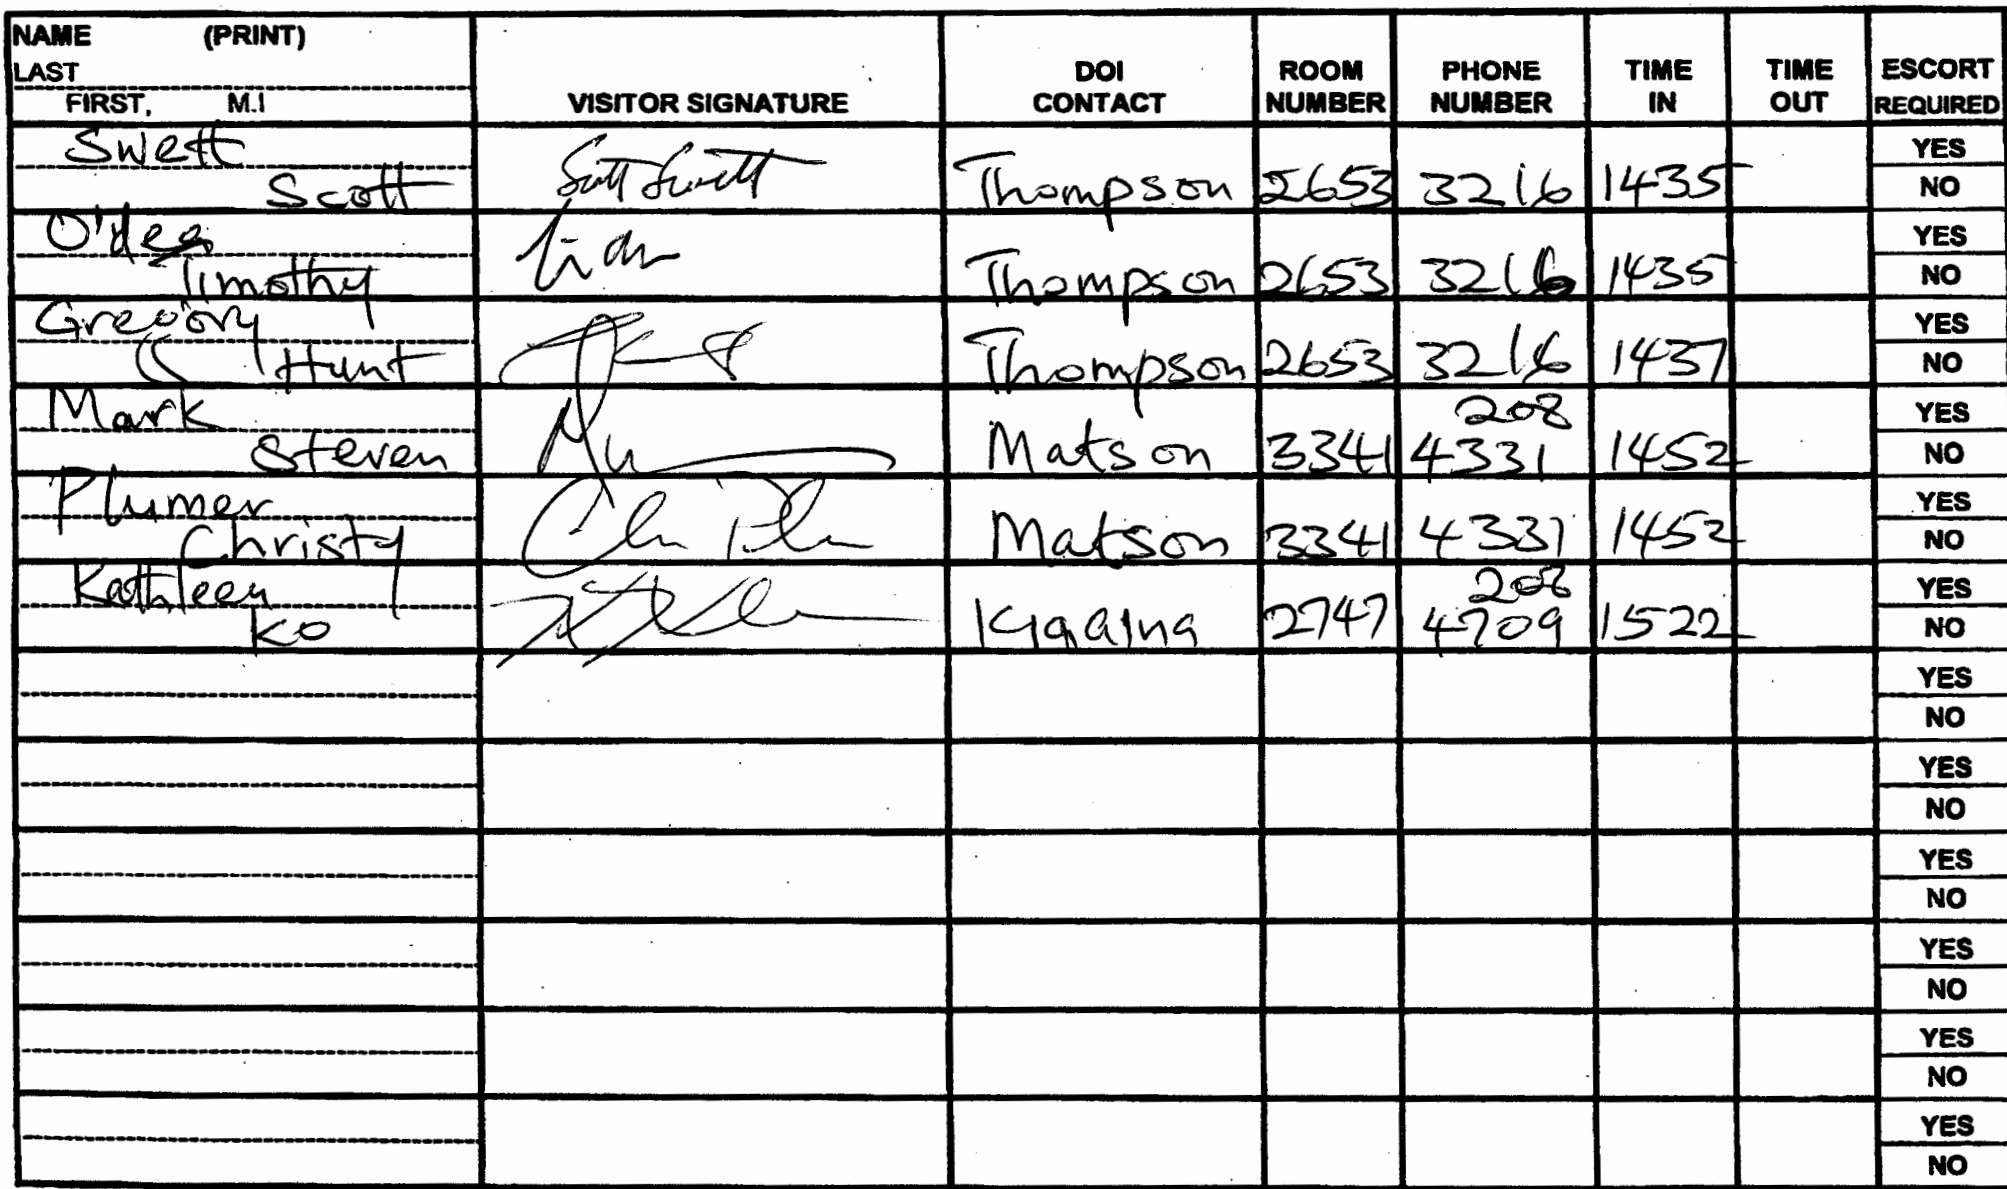 NAME (PRINT)
LAST
FIRST, M.I
VISITOR SIGNATURE
DOI CONTACT
ROOM NUMBER
PHONE NUMBER
TIME IN
TIME OUT
ESCORT REQUIRED
Swett
Scott Scott Swett Thompson 2653 3216 1435 YES NO
O'dea
Timothy Thompson 2653 3216 1435 YES NO
Gregory
Hunt Thompson 2653 3216 1437 YES NO
Mark 208
Steven Matson 3341 4331 1452 YES NO
Plumer
Christy Matson 3341 4331 1452 YES NO
Kathleen 208
Ko Kiaaina 2747 4709 1522 YES NO
YES
NO
YES
NO
YES
NO
YES
NO
YES
NO
YES
NO